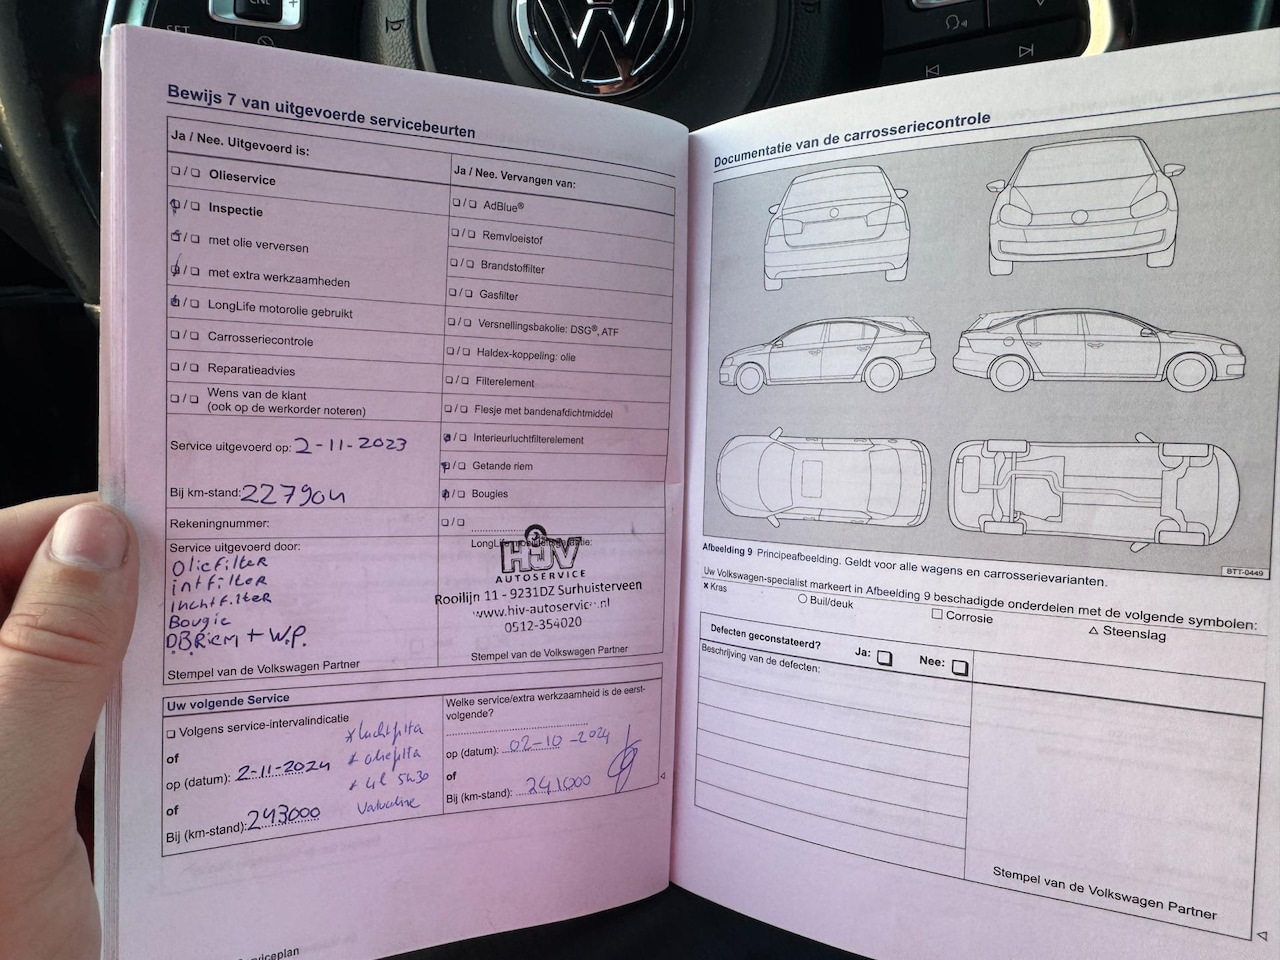 SET
CNL
+
Bewijs 7 van uitgevoerde servicebeurten
Ja / Nee. Uitgevoerd is:
Olieservice
Inspectie
met olie verversen
met extra werkzaamheden
LongLife motorolie gebruikt
Carrosseriecontrole
Reparatieadvies
Wens van de klant
(ook op de werkorder noteren)
Service uitgevoerd op: 2-11-2023
Bij km-stand: 227904
Rekeningnummer:
Service uitgevoerd door:
Oliefilter
intfilter
luchtfilter
Bougie
DBRiem + W.P.
Stempel van de Volkswagen Partner
Ja / Nee. Vervangen van:
AdBlue®
Remvloeistof
Brandstoffilter
Gasfilter
Versnellingsbakolie: DSG®, ATF
Haldex-koppeling: olie
Filterelement
Flesje met bandenafdichtmiddel
Interieurluchtfilterelement
Getande riem
Bougies
HJV
AUTOSERVICE
Rooilijn 11 - 9231DZ Surhuisterveen
www.hjv-autoservice.nl
0512-354020
Stempel van de Volkswagen Partner
Uw volgende Service
Volgens service-intervalindicatie
of
op (datum): 2-11-2024
of
Bij (km-stand): 243000
* luchtfilta
* oliefilta
* 4l 5w30
Valvoline
Welke service/extra werkzaamheid is de eerst-
volgende?
op (datum): 02-10-2024
of
Bij (km-stand): 241000
Serviceplan
Documentatie van de carrosseriecontrole
BTT-0449
Afbeelding 9 Principeafbeelding. Geldt voor alle wagens en carrosserievarianten.
Uw Volkswagen-specialist markeert in Afbeelding 9 beschadigde onderdelen met de volgende symbolen:
x Kras
○ Buil/deuk
□ Corrosie
△ Steenslag
Defecten geconstateerd? Ja: Nee:
Beschrijving van de defecten:
Stempel van de Volkswagen Partner